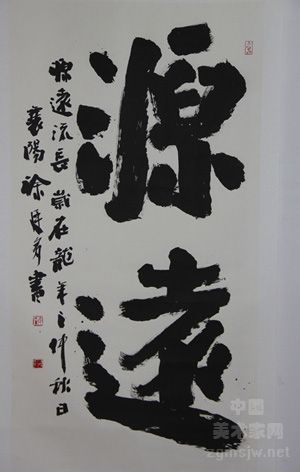 源遠
源遠流長歲在龍年之仲秋日
襄陽徐 書
中国
美术家网
zgmsjw.net